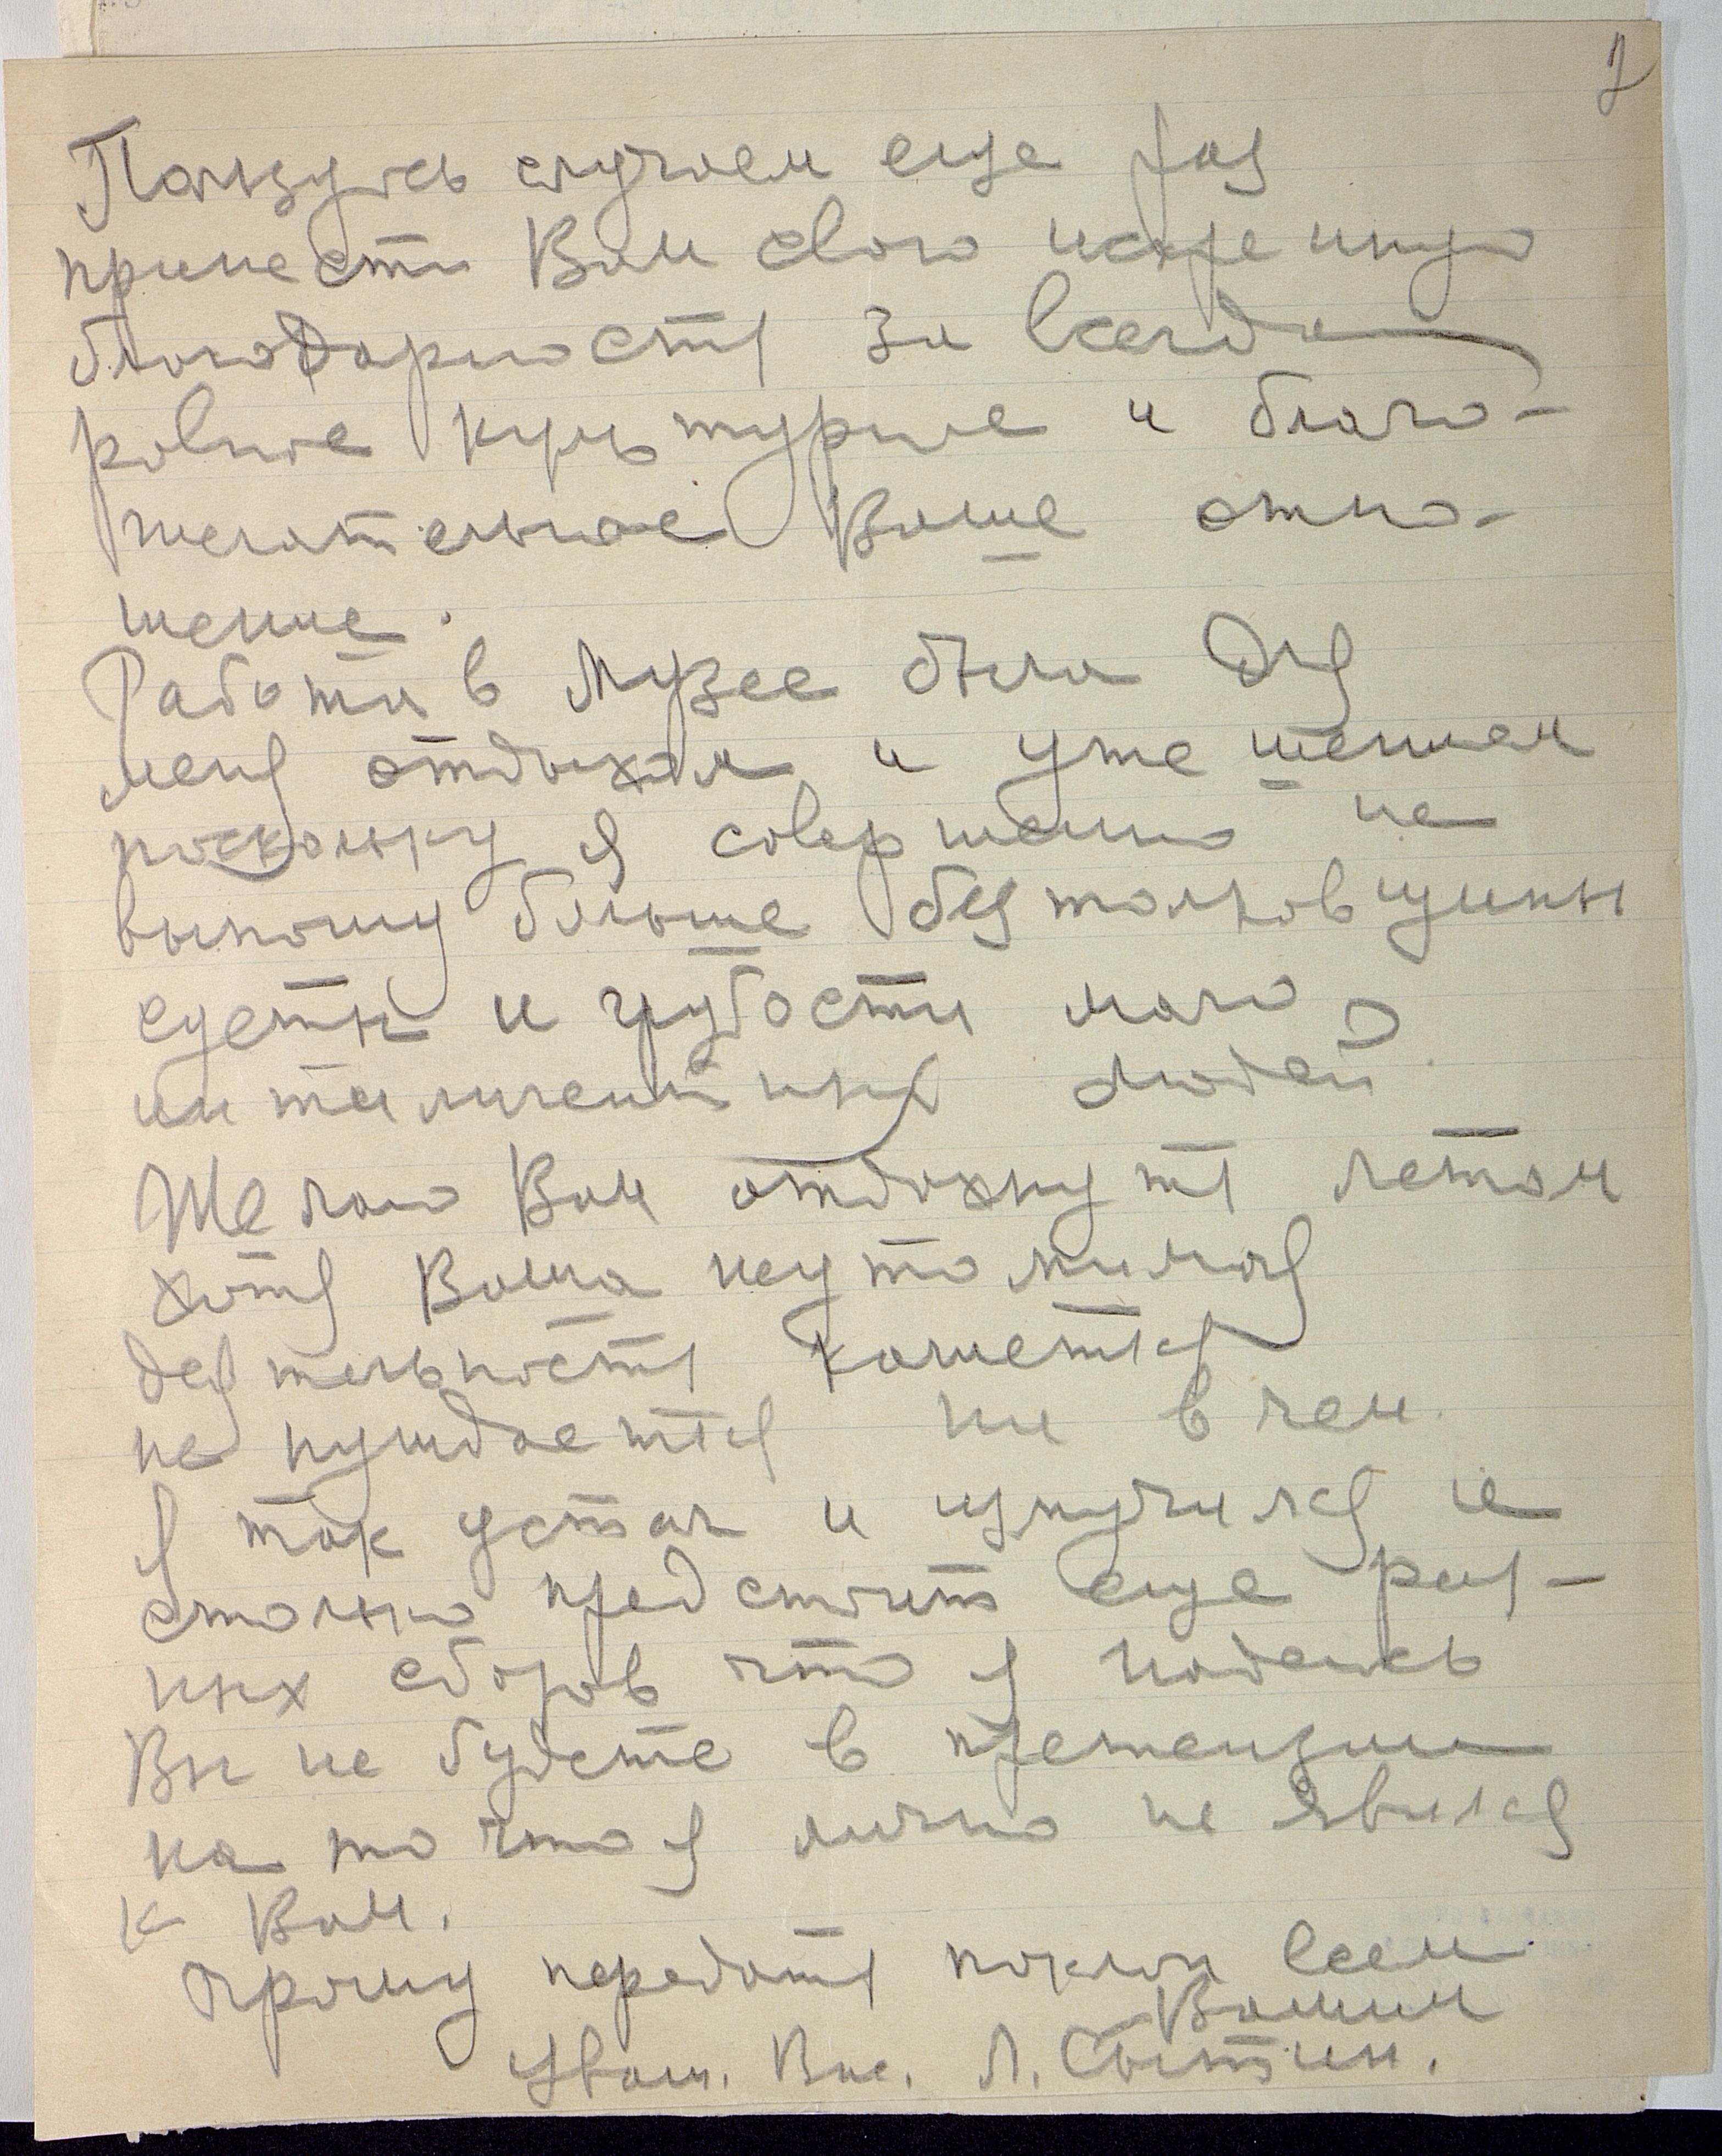 2
Пользуюсь случаем еще раз
принести Вам свою искреннюю
благодарность за всегда
ровное культурное и благо-
желательное Ваше отно-
шение.
Работа в Музее была для
меня отдыхом и утешением
поскольку я совершенно не
выношу больше бестолковщины
суеты и грубости мало
интеллигентных людей.
Желаю Вам отдохнуть летом
хотя Ваша неутомимая
деятельность кажется
не нуждается ни в чем.
Я так устал и измучился и
столько предстоит еще раз-
ных сборов что я надеюсь
Вы не будете в претензии
на то что я лично не явился
к Вам.
Прошу передать поклон всем
Вашим
Уваж. Вас. Л. Сытин.